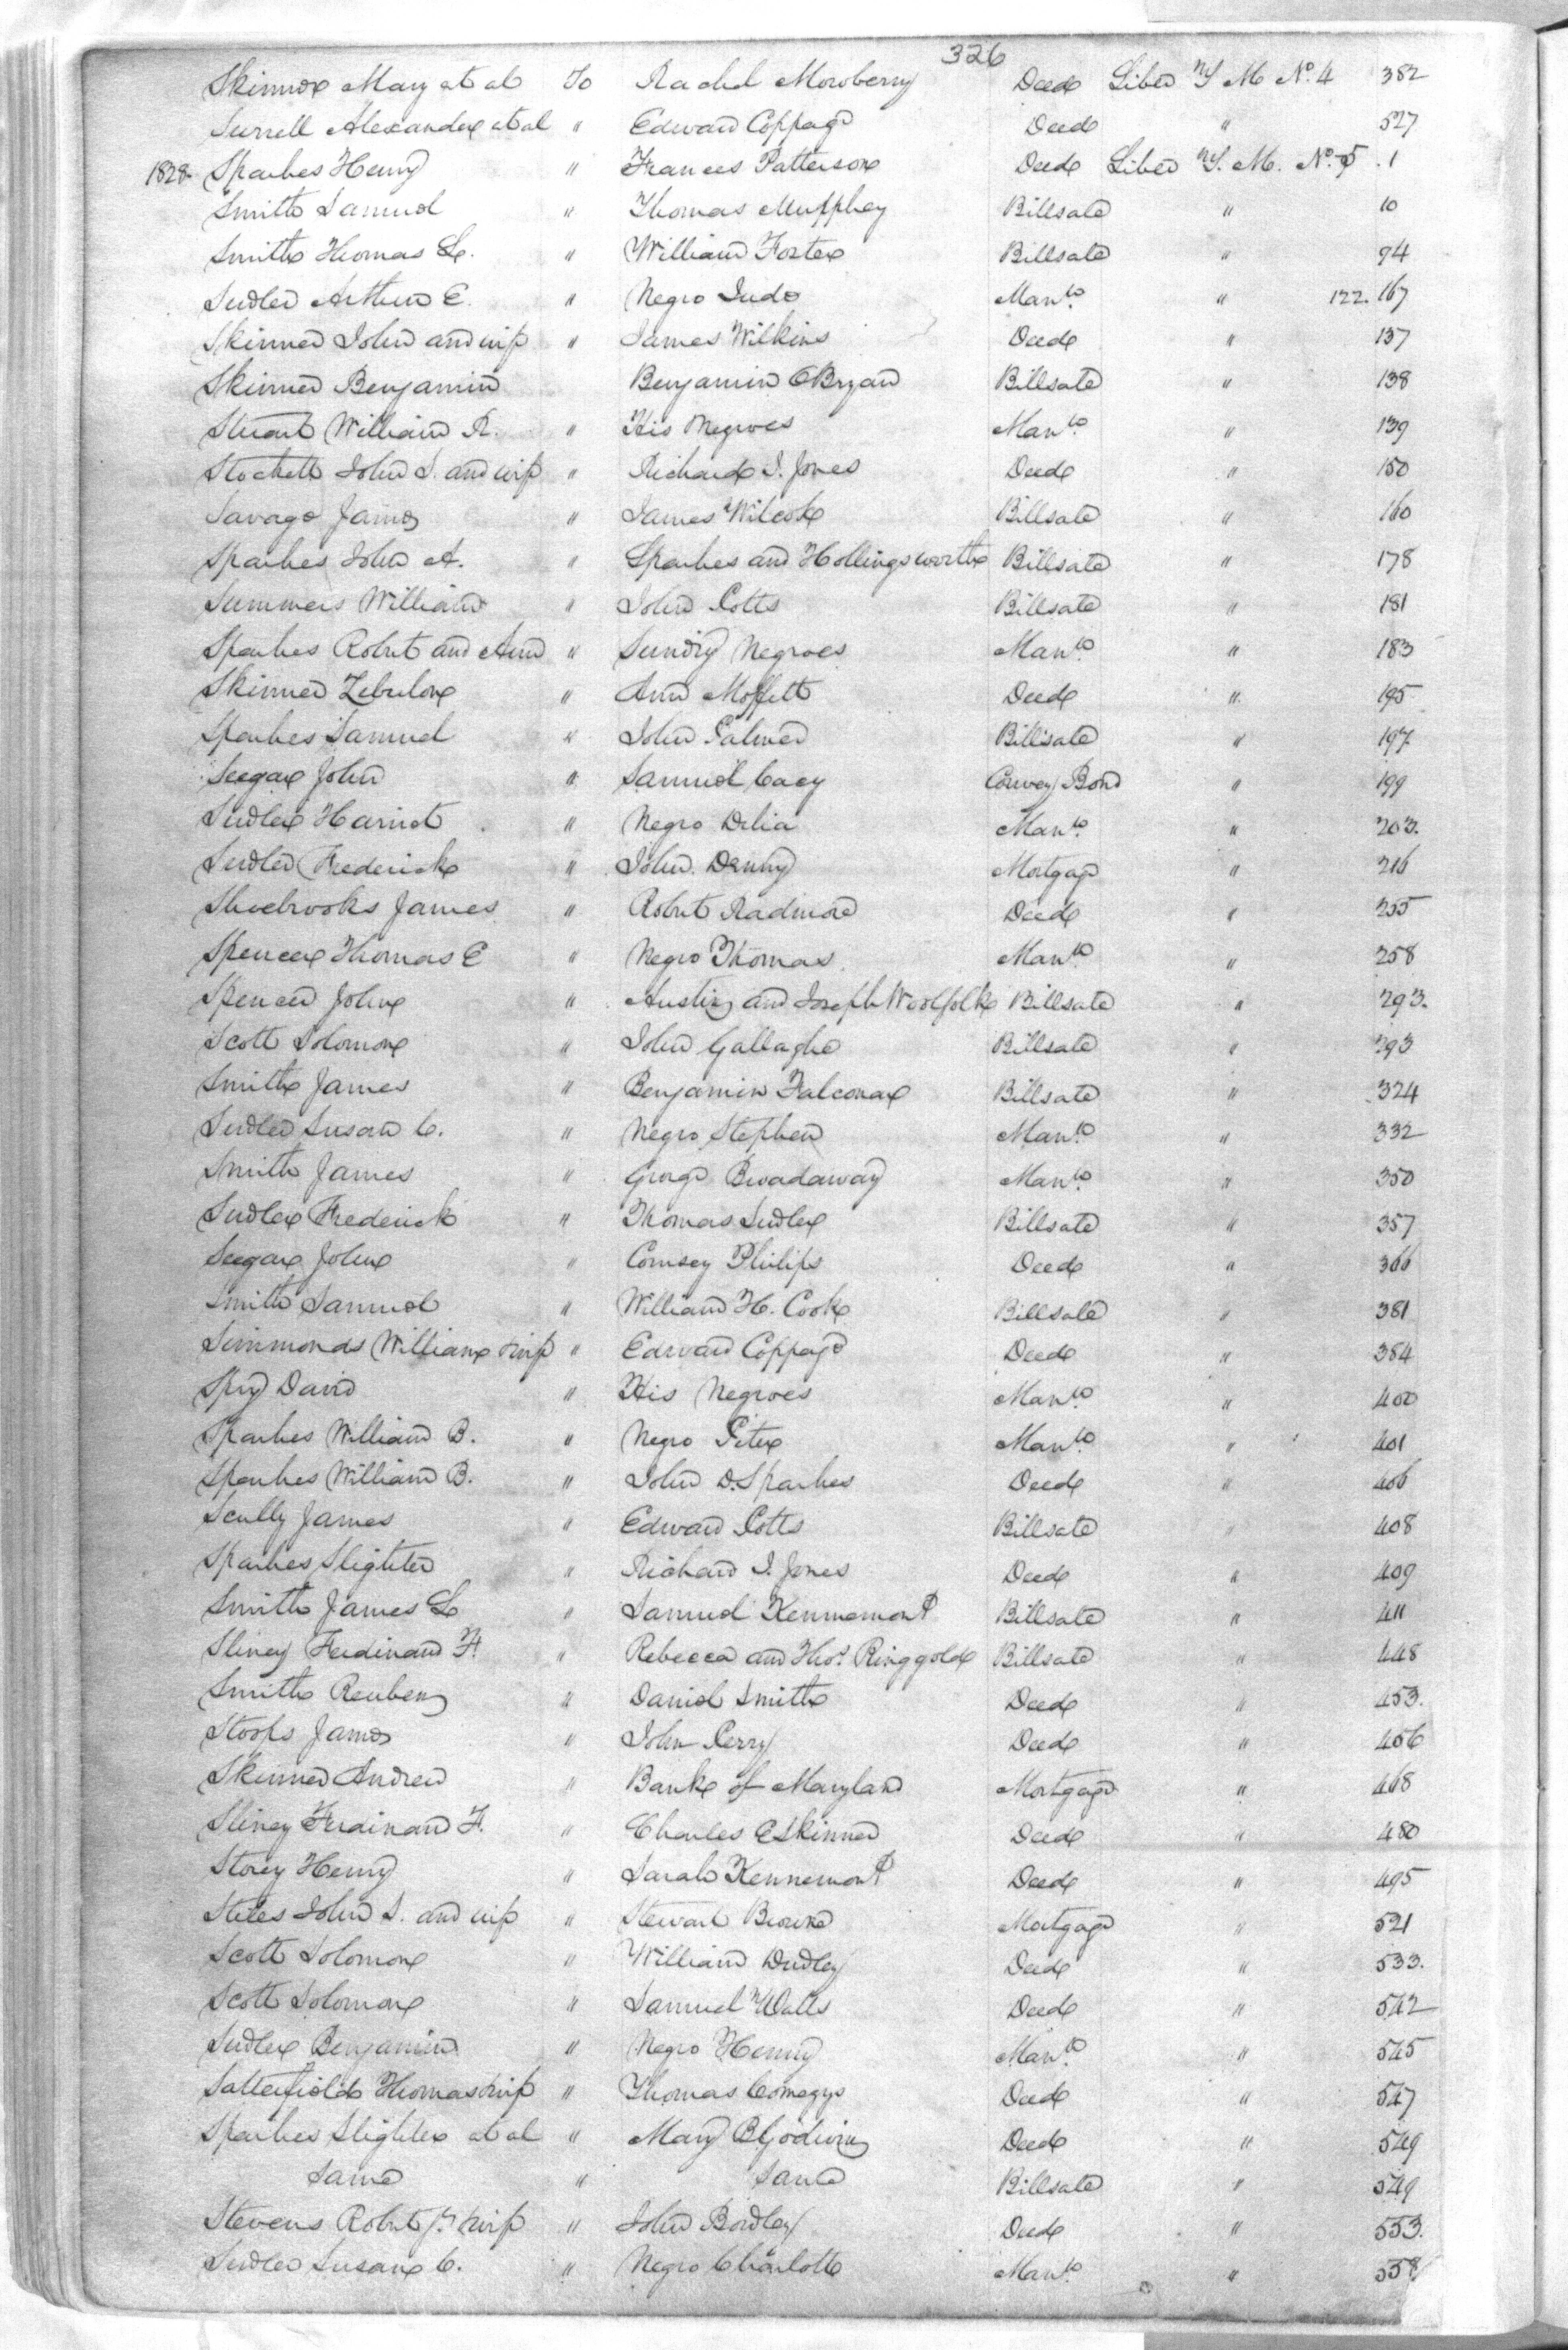 326
Skinner Mary et al To Rachel Mowberry Deed Liber T M No. 4 382
Surrell Alexander et al " Edward Coppage Deed " 527
1828 Sparkes Henry " Frances Patterson Deed Liber T. M. No. 5 1
Smith Samuel " Thomas Murphey Billsale " 10
Smith Thomas L. " William Foster Billsale " 94
Sudler Arthur E. " Negro Jude Manto. " 122. 167
Skinner John and wife " James Wilkins Deed " 137
Skinner Benjamin Benjamin OBryan Billsale " 138
Stuart William R. " His Negroes Manto. " 139
Stockett John S. and wife " Richard I. Jones Deed " 150
Savage James " James Wilcox Billsale " 160
Sparkes John A. " Sparkes and Hollingsworth Billsale " 178
Summers William " John Potts Billsale " 181
Sparkes Robert and Ann " Sundry Negroes Manto. " 183
Skinner Zebulon " Ann Moffett Deed " 195
Sparkes Samuel " John Palmer Billsale " 197
Seegar John " Samuel Cacy Convey Bond " 199
Sudler Harriet " Negro Delia Manto. " 203.
Sudler Frederick " John Denny Mortgage " 216
Shoebrooks James " Robert Radmore Deed " 255
Spencer Thomas E " Negro Thomas Manto. " 258
Spencer John " Austin and Joseph Woolfolk Billsale " 293.
Scott Solomon " John Gallagher Billsale " 293
Smith James " Benjamin Falconar Billsale " 324
Sudler Susan C. " Negro Stephen Manto. " 332
Smith James " George Broadaway Manto. " 350
Sudler Frederick " Thomas Sudler Billsale " 357
Seegar John " Comsey Philips Deed " 366
Smith Samuel " William H. Cook Billsale " 381
Simmonds William & wife " Edward Coppage Deed " 384
Spry David " His Negroes Manto. " 400
Sparkes William B. " Negro Peter Manto. " 401
Sparkes William B. " John D. Sparkes Deed " 406
Scully James " Edward Potts Billsale " 408
Sparkes Slighter " Richard I. Jones Deed " 409
Smith James L " Samuel Kennemont Billsale " 411
Sliney Ferdinand F. " Rebecca and Thos. Ringgold Billsale " 448
Smith Reuben " Daniel Smith Deed " 453.
Stoops James " John Perry Deed " 456
Skinner Andrew " Bank of Maryland Mortgage " 468
Sliney Ferdinand F. " Charles E Skinner Deed " 480
Storey Henry " Sarah Kennemont Deed " 495
Stites John S. and wife " Stewart Browne Mortgage " 521
Scott Solomon " William Dudley Deed " 533.
Scott Solomon " Samuel Watts Deed " 542
Sudler Benjamin " Negro Henny Manto. " 545
Satterfield Thomas & wife " Thomas Comegys Deed " 547
Sparkes Slighter et al " Mary B Godwin Deed " 549
Same " Same Billsale " 549
Stevens Robert Jr. & wife " John Bordley Deed " 553.
Sudler Susan C. " Negro Charlotte Manto. " 558